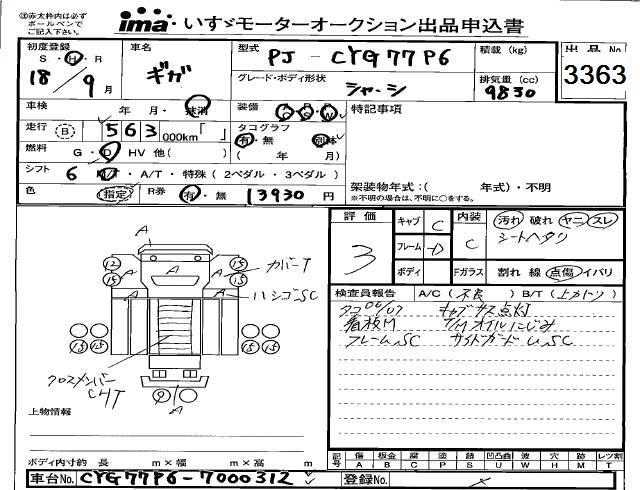 ㊟赤太枠内は必ず
ボールペンで
ご記入下さい。
ima いすゞモーターオークション出品申込書
初度登録 S・H・R 18 / 9月
車名 ギガ
型式 PJ - CYG77P6
積載 (kg)
グレード・ボディ形状 シャーシ
排気量 (cc) 9830
出品No 3363
車検 年 月・抹消
装備 A S W
特記事項
走行 (B) 563,000km「 」
タコグラフ 有・無 別体
( 年 月)
燃料 G・D・HV 他( )
シフト 6 M/T・A/T・特殊(2ペダル・3ペダル)
架装物年式:( 年式)・不明
※不明の場合は、不明に○をする。
色 (指定) R券 有・無 13930円
評価 3
キャブ C
フレーム D
ボディ
内装 C
Fガラス
汚れ 破れ ヤニ スレ
シートヘタリ
割れ 線 点傷 イバリ
A
12 15 A 15 15 カバーT
A A ハシゴSC
15 15 15 15
クロスメンバー
CHT
9
A
検査員報告 A/C(不良) B/T(上カトリ)
タコ06/07 キャブサス点灯
看板M T/Mオイルにじみ
フレームSC サイドガードU,SC
上物情報
ボディ内寸約 長 m×幅 m×高 m
記号 傷 A 板金 B 腐 C 塗 P 錆 S 凹凸曲 U 波 W 穴 H 跡 M レツ割 T
車台No. CYG77P6-7000312
登録No.